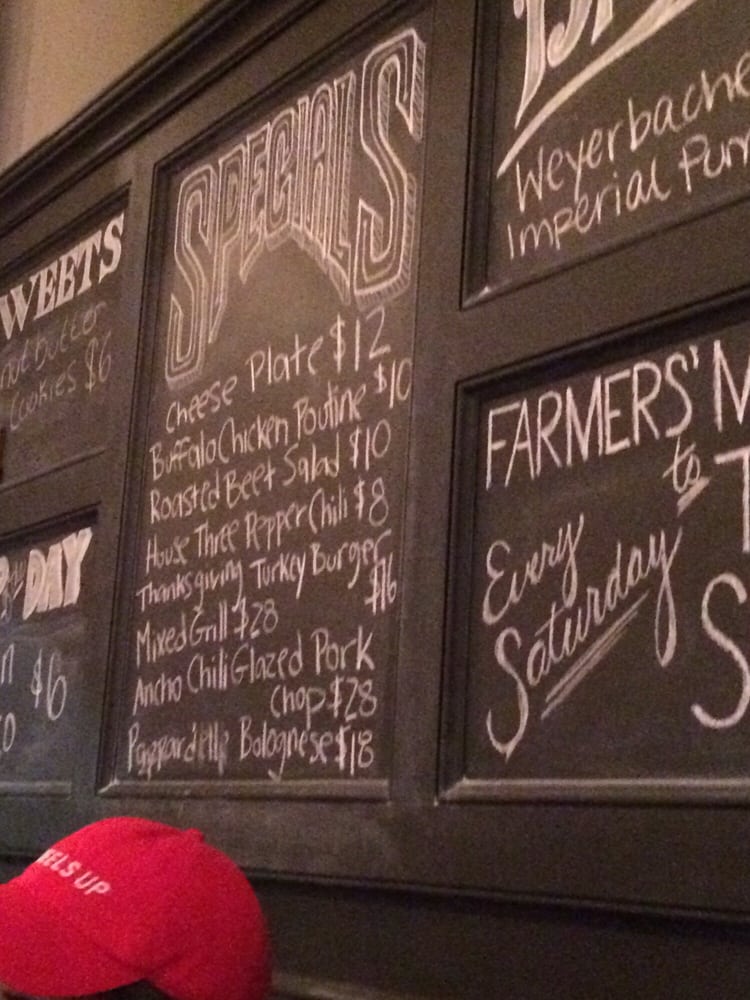 SPECIALS
Cheese Plate $12
Buffalo Chicken Poutine $10
Roasted Beet Salad $10
House Three Pepper Chili $8
Thanksgiving Turkey Burger
$16
Mixed Grill $28
Ancho Chili Glazed Pork
Chop $28
Pappardelle Bolognese $18
WEETS
Butter
Cookies $6
DAY
$6
Weyerbache
Imperial Pum
FARMERS' M
to
Every
Saturday
S
ELS UP